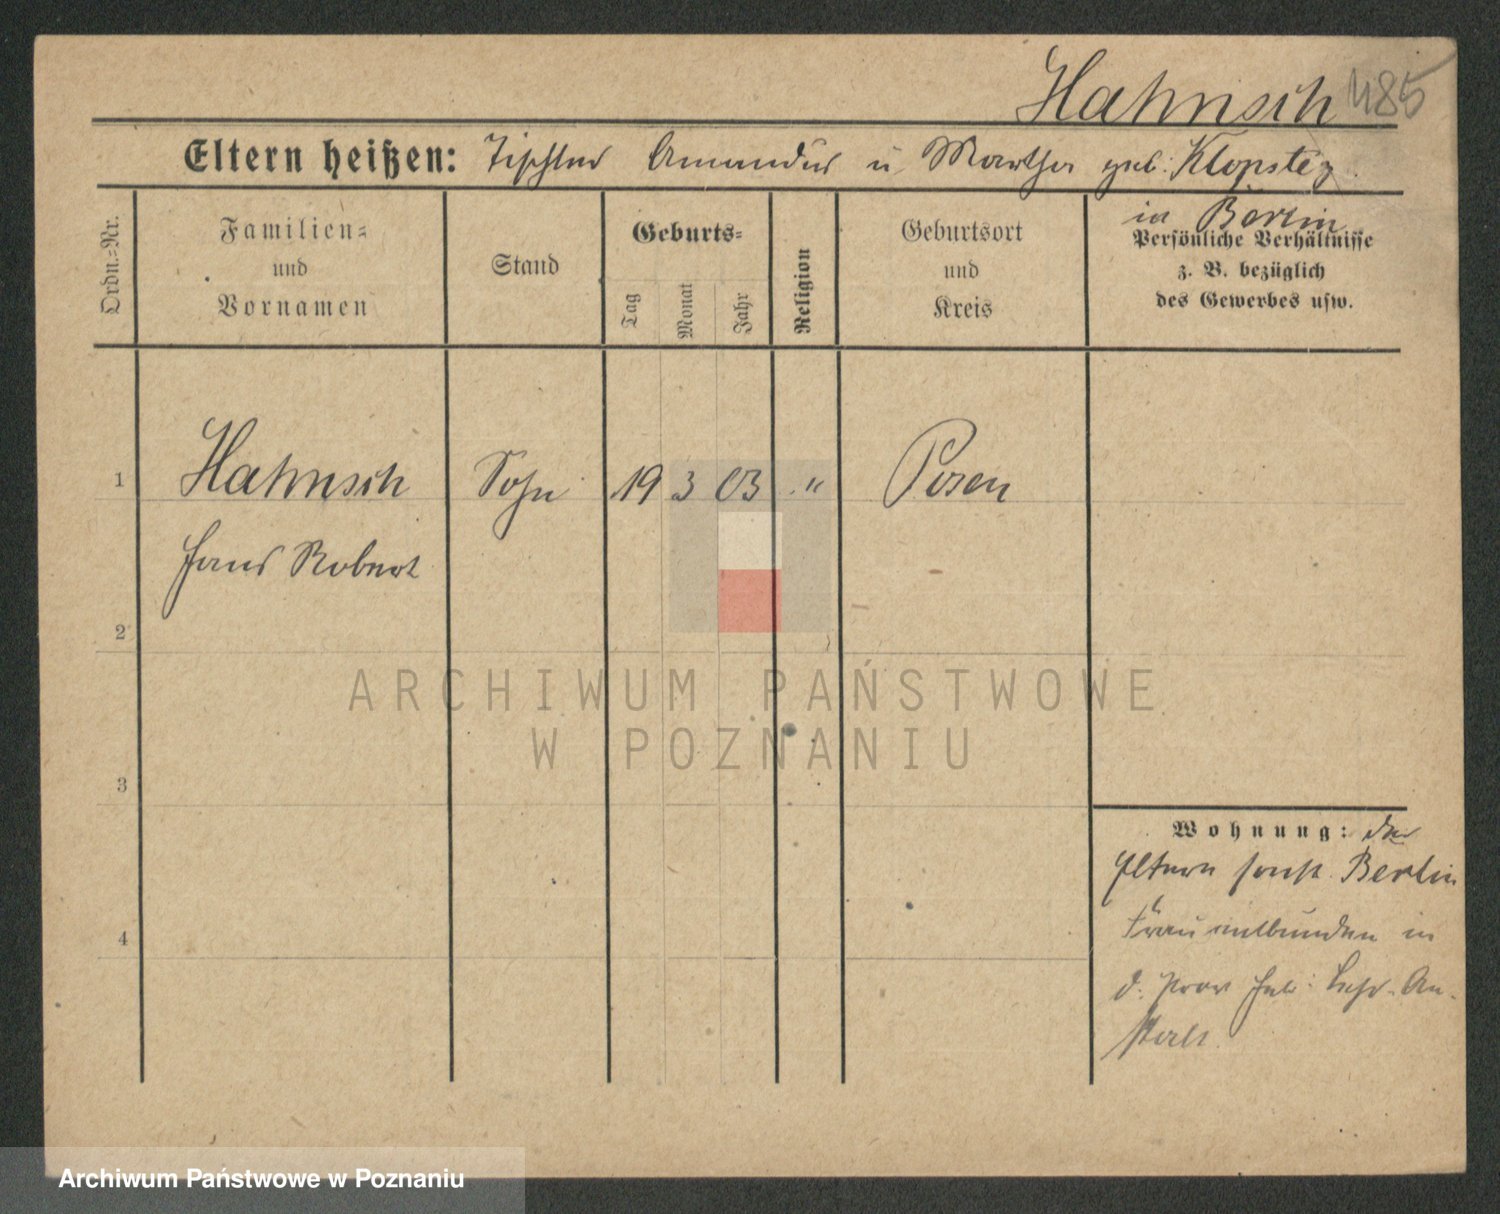 Hahnisch 485
Eltern heißen: Tischler Amandus u. Martha geb. Klopsteg
in Berlin
Ordn.=Nr.
Familien=
und
Vornamen
Stand
Geburts=
Tag
Monat
Jahr
Religion
Geburtsort
und
Kreis
Persönliche Verhältnisse
z. B. bezüglich
des Gewerbes usw.
1
Hahnisch Sohn 19 3 03 " Posen
Hans Robert
2
ARCHIWUM PAŃSTWOWE
W POZNANIU
3
Wohnung: der
Eltern sonst Berlin
4
Frau entbunden in
d. Prov. Heb. Lehr-An-
stalt.
Archiwum Państwowe w Poznaniu